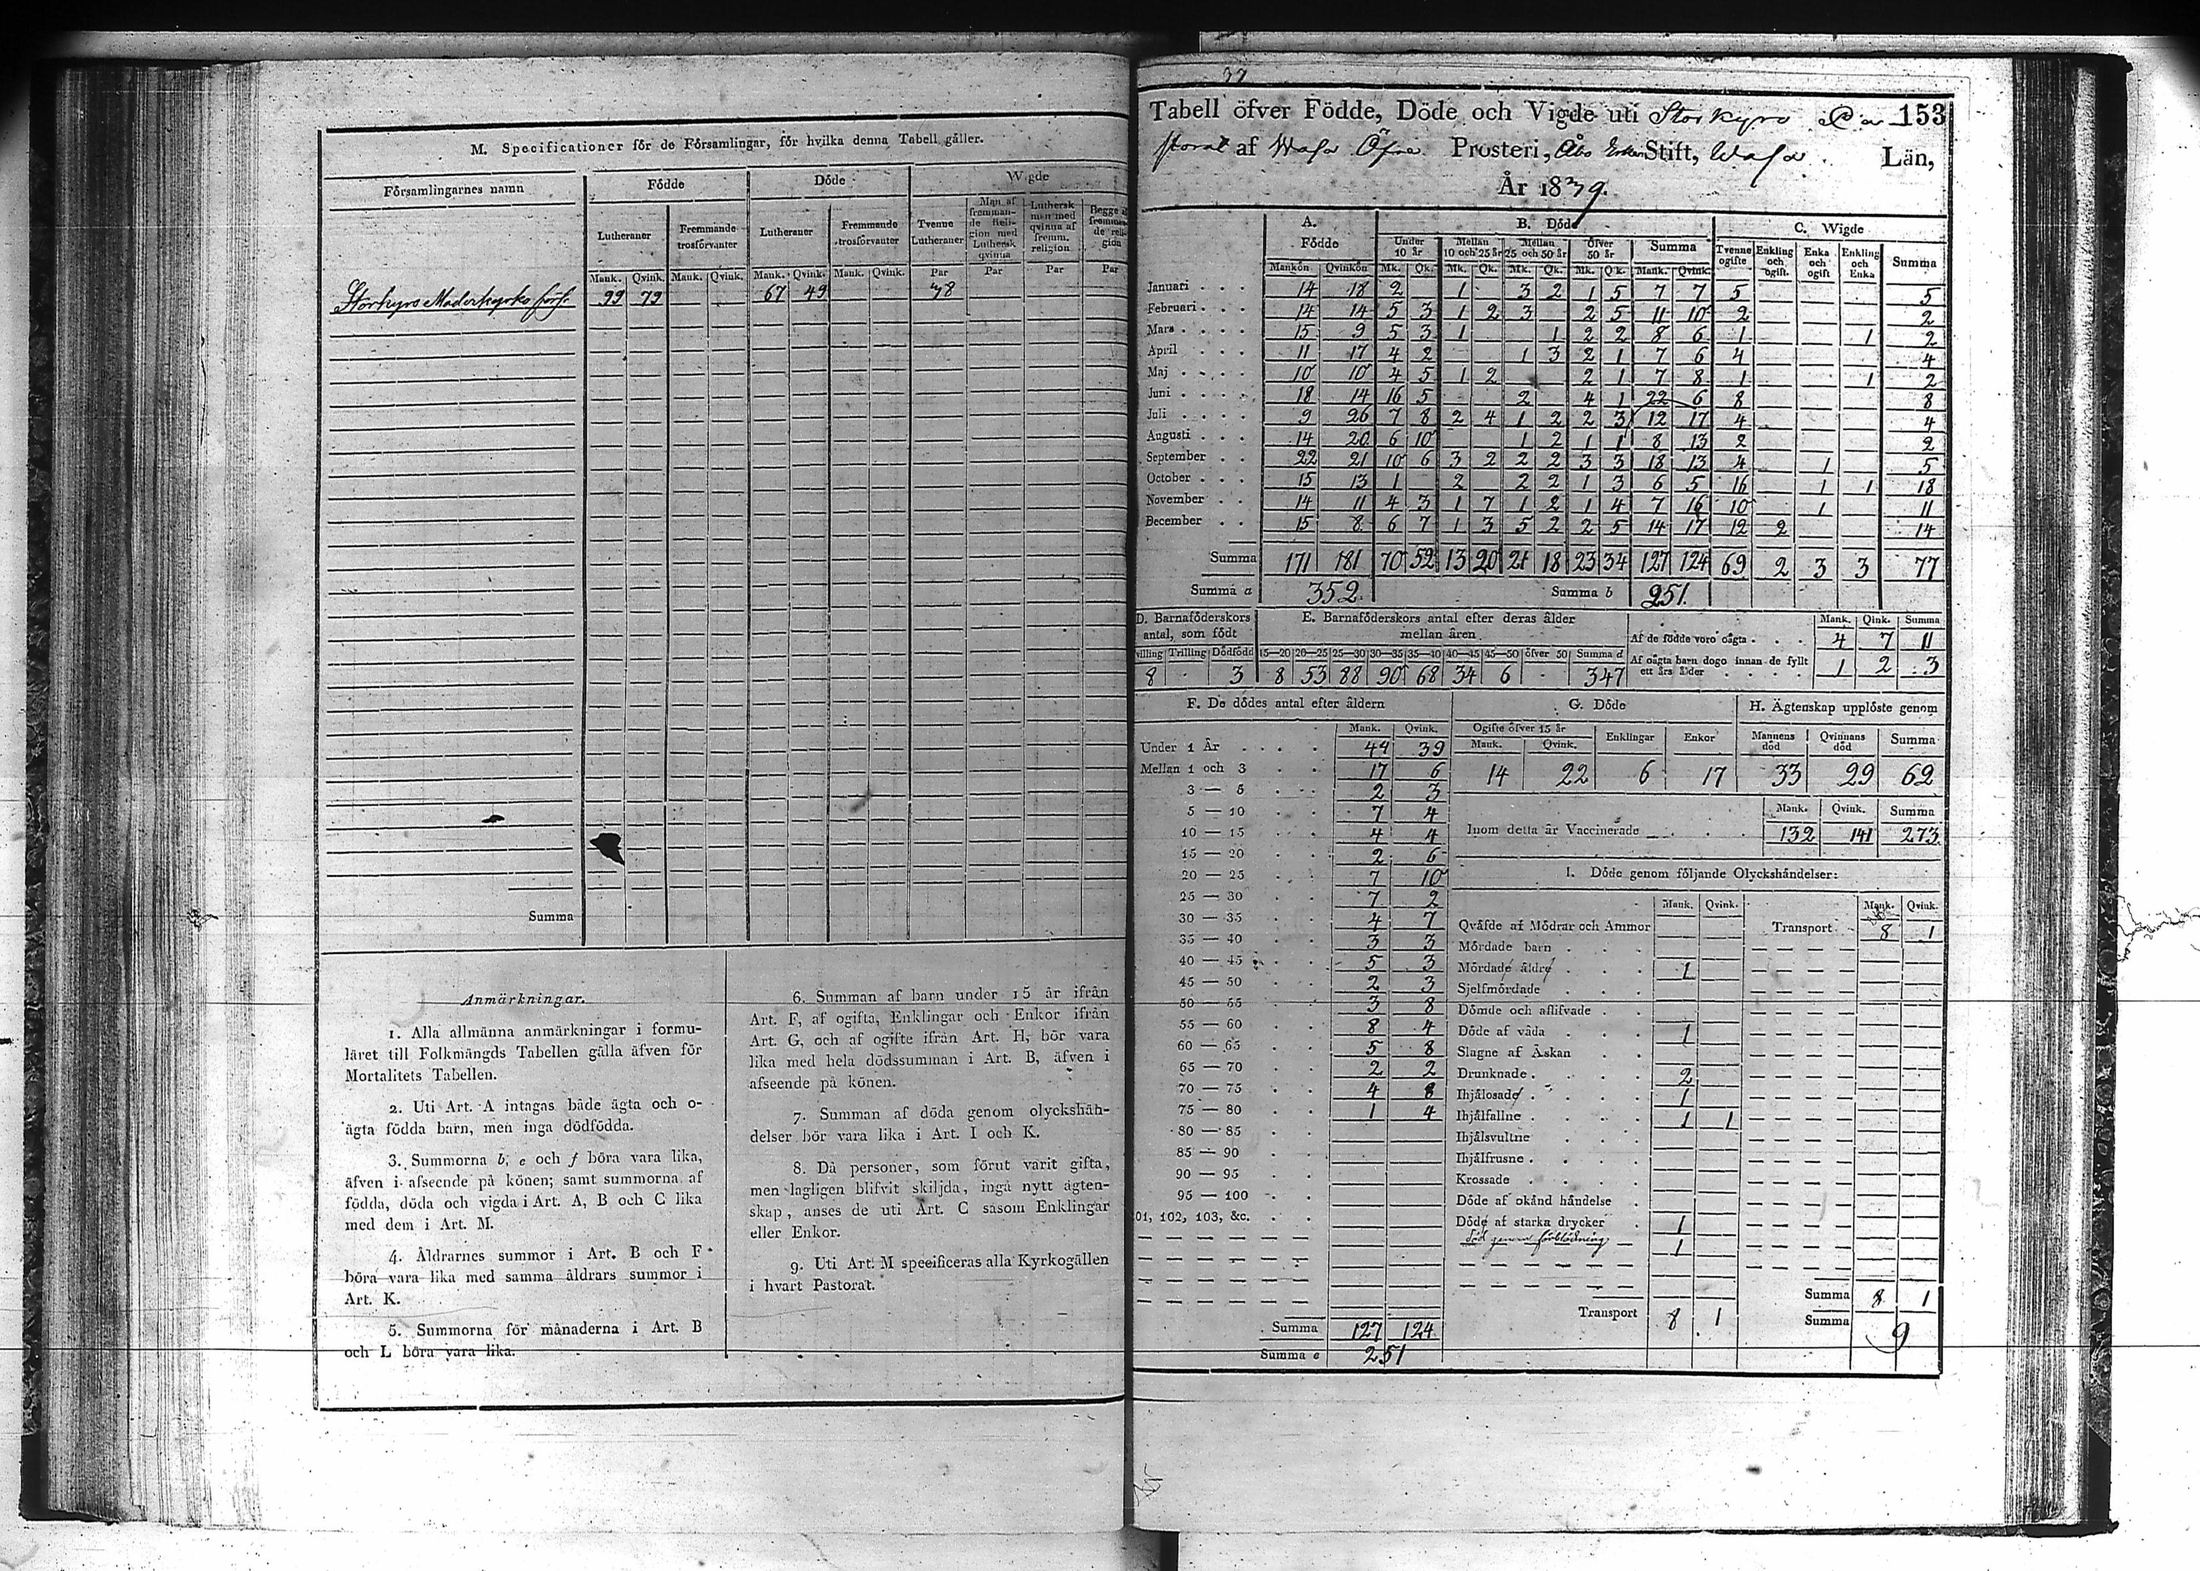 M. Specificationer för de Församlingar, för hvilka denna Tabell gäller.
Församlingarnes namn Födde Döde Wigde
Lutheraner Fremmande trosförvanter Lutheraner Fremmande trosförvanter Tvenne Lutheraner Man af fremmande Religion med Luthersk qvinna Luthersk man med qvinna af fremm. religion Begge
Mank. Qvink. Mank. Qvink. Mank. Qvink. Mank. Qvink. Par Par Par Par
Storkyro Moderkyrko förs. 99 79 67 49 38
Summa
Anmärkningar.
1. Alla allmänna anmärkningar i formu-
läret till Folkmängds Tabellen gälla äfven för
Mortalitets Tabellen.
2. Uti Art. A intagas både ägta och o-
ägta födda barn, men inga dödfödda.
3. Summorna b, e och f böra vara lika,
äfven i afseende på könen; samt summorna af
födda, döda och vigda i Art. A, B och C lika
med dem i Art. M.
4. Åldrarnes summor i Art. B och F
böra vara lika med samma åldrars summor i
Art. K.
5. Summorna för månaderna i Art. B
och L böra vara lika.
6. Summan af barn under 15 år ifrån
Art. F, af ogifta, Enklingar och Enkor ifrån
Art. G, och af ogifte ifrån Art. H, bör vara
lika med hela dödssumman i Art. B, äfven i
afseende på könen.
7. Summan af döda genom olyckshän-
delser bör vara lika i Art. I och K.
8. Då personer, som förut varit gifta,
men lagligen blifvit skiljda, ingå nytt ägten-
skap, anses de uti Art. C såsom Enklingar
eller Enkor.
9. Uti Art. M specificeras alla Kyrkogällen
i hvart Pastorat.
Tabell öfver Födde, Döde och Vigde uti Storkyro Pa- 153
storat af Wasa Öfre Prosteri, Åbo Erke Stift, Wasa Län,
År 1839.
A. Födde B. Döde C. Wigde
Under 10 år Mellan 10 och 25 år Mellan 25 och 50 år Öfver 50 år Summa Tvenne ogifte Enkling och ogift. Enka och ogift Enkling och Enka Summa
Mankön Qvinkön Mk. Qk. Mk. Qk. Mk. Qk. Mk. Qk. Mank. Qvink.
Januari 14 18 2 1 3 2 1 5 7 7 5 5
Februari 14 14 5 3 1 2 3 2 5 11 10 2 2
Mars 15 9 5 3 1 1 2 2 8 6 1 1 2
April 11 17 4 2 1 3 2 1 7 6 4 4
Maj 10 10 4 5 1 2 2 1 7 8 1 1 2
Juni 18 14 16 5 2 4 1 22 6 8 8
Juli 9 26 7 8 2 4 1 2 2 3 12 17 4 4
Augusti 14 20 6 10 1 2 1 1 8 13 2 2
September 22 21 10 6 3 2 2 2 3 3 18 13 4 1 5
October 15 13 1 2 2 2 1 3 6 5 16 1 1 18
November 14 11 4 3 1 7 1 2 1 4 7 16 10 1 11
December 15 8 6 7 1 3 5 2 2 5 14 17 12 2 14
Summa 171 181 70 52 13 20 21 18 23 34 127 124 69 2 3 3 77
Summa a 352 Summa b 251
D. Barnaföderskors antal, som födt E. Barnaföderskors antal efter deras ålder mellan åren Mank. Qink. Summa
villing Trilling Dödfödd 15—20 20—25 25—30 30—35 35—40 40—45 45—50 öfver 50 Summa d
8 3 8 53 88 90 68 34 6 347
Af de födde voro oägta 4 7 11
Af oägta barn dogo innan de fyllt ett års ålder 1 2 3
F. De dödes antal efter åldern
Mank. Qvink.
Under 1 År 44 39
Mellan 1 och 3 17 6
3 — 5 2 3
5 — 10 7 4
10 — 15 4 4
15 — 20 2 6
20 — 25 7 10
25 — 30 7 2
30 — 35 4 7
35 — 40 3 3
40 — 45 5 3
45 — 50 2 3
50 — 55 3 8
55 — 60 8 4
60 — 65 5 8
65 — 70 2 2
70 — 75 4 8
75 — 80 1 4
80 — 85
85 — 90
90 — 95
95 — 100
01, 102, 103, &c.
Summa 127 124
Summa e 251
G. Döde
Ogifte öfver 15 år Enklingar Enkor
Mank. Qvink.
14 22 6 17
H. Ägtenskap upplöste genom
Mannens död Qvinnans död Summa
33 29 62
Mank. Qvink. Summa
Inom detta år Vaccinerade 132 141 273
I. Döde genom följande Olyckshändelser:
Mank. Qvink. Mank. Qvink.
Qväfde af Mödrar och Ammor Transport 8 1
Mördade barn
Mördade äldre 1
Sjelfmördade
Dömde och aflifvade
Döde af våda 1
Slagne af Åskan
Drunknade 2
Ihjälosade 1
Ihjälfallne 1 1
Ihjälsvultne
Ihjälfrusne
Krossade
Döde af okänd händelse
Döde af starka drycker 1
Död genom förblödning 1
Summa 8 1
Transport 8 1 Summa 9